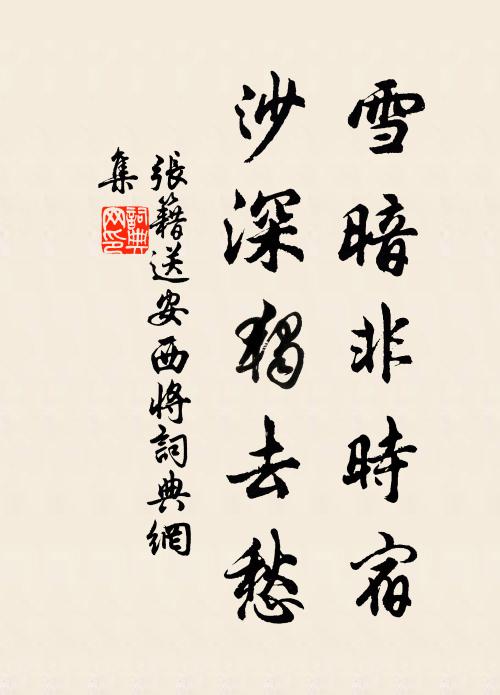 雪暗非時宿
沙深獨去愁
張籍送安西將詞典網
集
詞典
网印